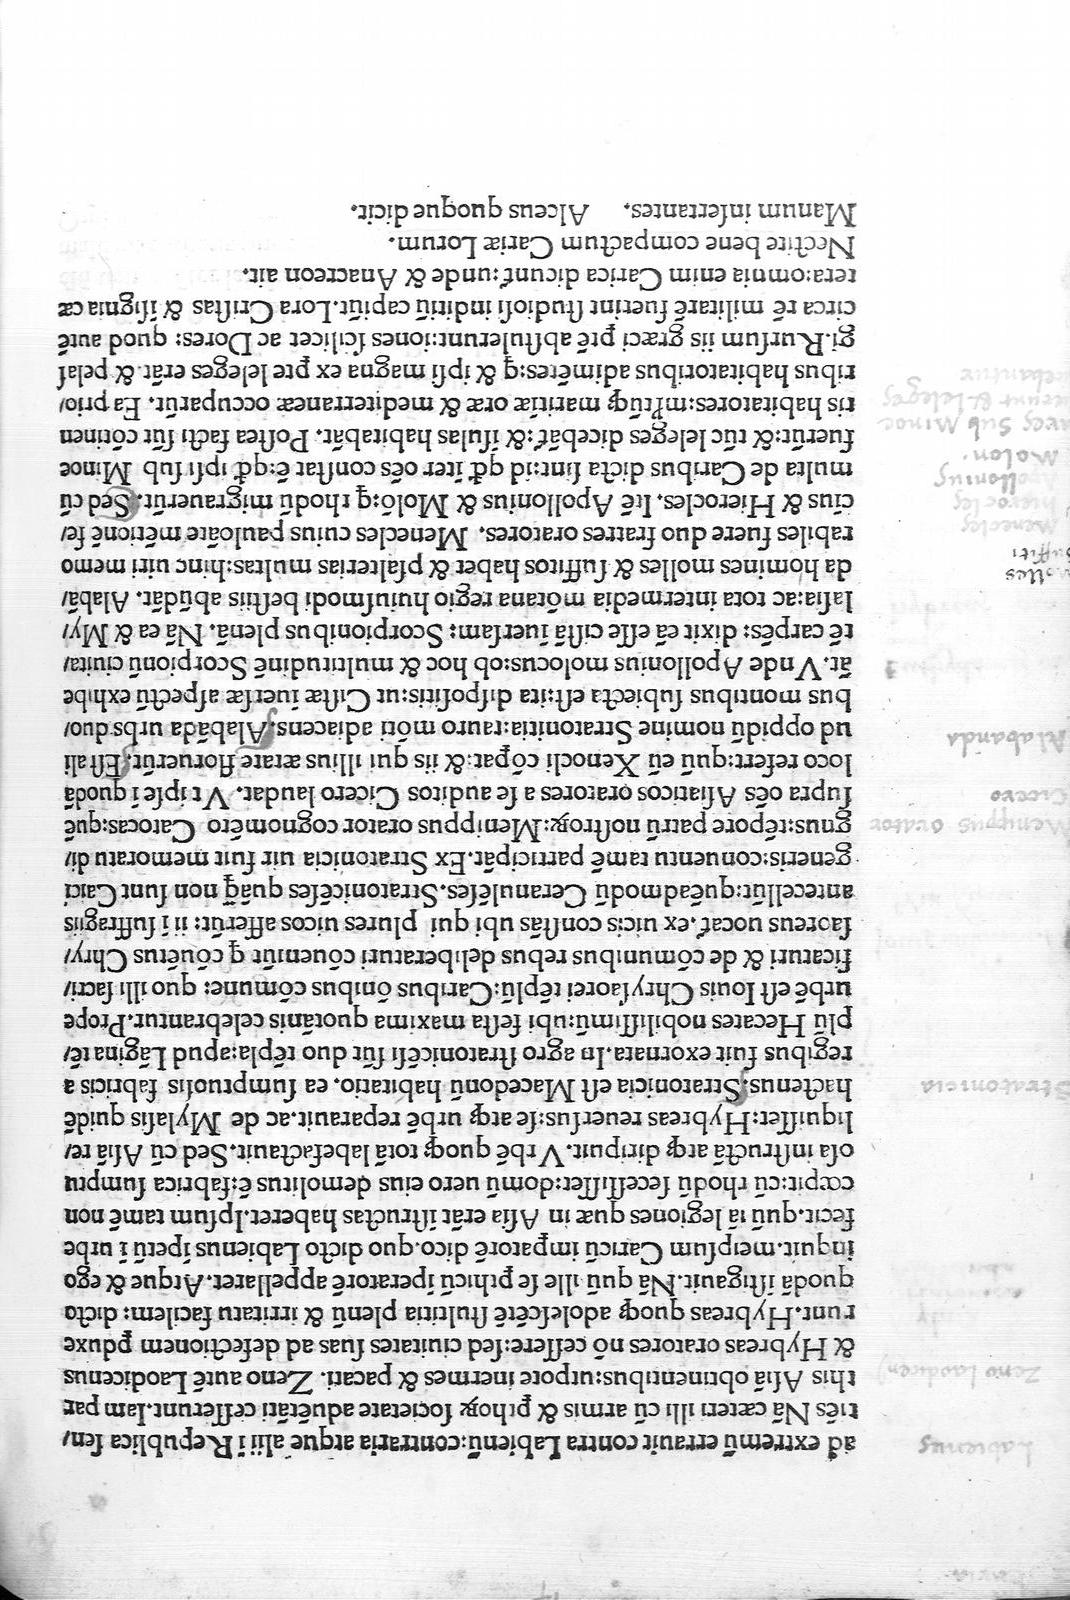 ad extremū errauit contra Labienū:contraria atque alii i Republica sen/
tiēs Nā cæteri illi cū armis & ꝑthoꝝ societate aduētāti cesserunt.Iam par
this Asiā obtinentibus:utpote inermes & pacati. Zeno autē Laodicenus
& Hybreas oratores nō cessere:sed ciuitates suas ad defectionem ꝑduxe
runt. Hybreas quoqꝫ adolescētē stultitia plenū & irritatu facilem: dicto
quodā istigauit.Nā quū ille se ꝑthicū iperatorē appellaret. Atque & ego
inquit.meipsum Caricū imꝑatorē dico.quo dicto Labienus ipetū i urbē
fecit.quū iā legiones quæ in Asia erāt istructas haberet.Ipsum tamē non
cœpit:cū rhodū secessisset:domū uero eius demolitus ē:fabrica sumptu
osa instructā atqꝫ diripuit. Vrbē quoqꝫ totā labefactauit.Sed cū Asiā re/
liquisset:Hybreas reuersus:se atqꝫ urbē reparauit.ac de Mylasis quidē
hactenus.Stratonicia est Macedonū habitatio. ea sumptuosis fabricis a
regibus fuit exornata.In agro stratonicēsi sūt duo tēpla:apud Lagina tē/
plū Hecates nobilissimū:ubi festa maxima quotānis celebrantur.Prope
urbē est Iouis Chrysaorei tēplū:Caribus ōnibus cōmune: quo illi sacri/
ficaturi & de cōmunibus rebus deliberaturi cōueniūt q̄ cōuētus Chry/
saoreus uocat̄.ex uicis constās ubi qui plures uicos afferūt: ii i suffragiis
antecellūt:quēadmodū Ceranulēses.Stratonicēses quāq̄ non sunt Caici
generis:conuentu tamē participāt.Ex Stratonicia uir fuit memoratu di/
gnus:tēpore patrū nostroꝝ: Menippus orator cognomēto Catocas:quē
supra oēs Asiaticos oratores a se auditos Cicero laudat. Vt ipse i quodā
loco refert:quū eū Xenocli cōpat:& iis qui illius ætate floruerūt.Est ali
ud oppidū nomine Stratonitia:tauro mōti adiacens.Alabāda urbs duo/
bus montibus subiecta est:ita dispositis:ut Cistæ iuersæ aspectū exhibe
āt. Vnde Apollonius molocus:ob hoc & multitudinē Scorpionū ciuita/
tē carpēs: dixit eā esse cistā iuersam: Scorpionibus plenā. Nā ea & My/
lasia:ac tota intermedia mōtana regio huiusmodi bestiis abūdāt. Alabā/
da homines molles & suffitos habet & psalterias multas:hinc uiri memo
rabiles fuere duo fratres oratores. Menecles cuius pauloāte mētionē fe/
cius & Hierocles. Itē Apollonius & Molō:q̄ rhodū migrauerūt.Sed cū
multa de Caribus dicta sint:id qđ iter oēs constat ē:qđ ipsi sub Minoe
fuerūt:& tūc leleges dicebāt̄:& isulas habitabāt. Postea facti sūt cōtinen
tis habitatores:mltūqꝫ maritiæ oræ & mediterraneæ occuparūt. Ea prio/
ribus habitatoribus adimētes:q̄ & ipsi magna ex ꝑte leleges erāt.& pelas
gi.Rursum iis græci ꝑtē abstulerunt:iones scilicet ac Dores: quod autē
circa rē militarē fuerint studiosi inditiū capiūt.Lora Cristas & isignia cæ
tera:omnia enim Carica dicunt̄:unde & Anacreon ait.
Nectite bene compactum Cariæ Lorum.
Manum insertantes. Alceus quoque dicit.
Labienus
Zeno laodicen
Stratonicia
Menippus orator
Cicero
Alabanda
Molles
suffiti
Menecles
hierocles
Apollonius
Molon.